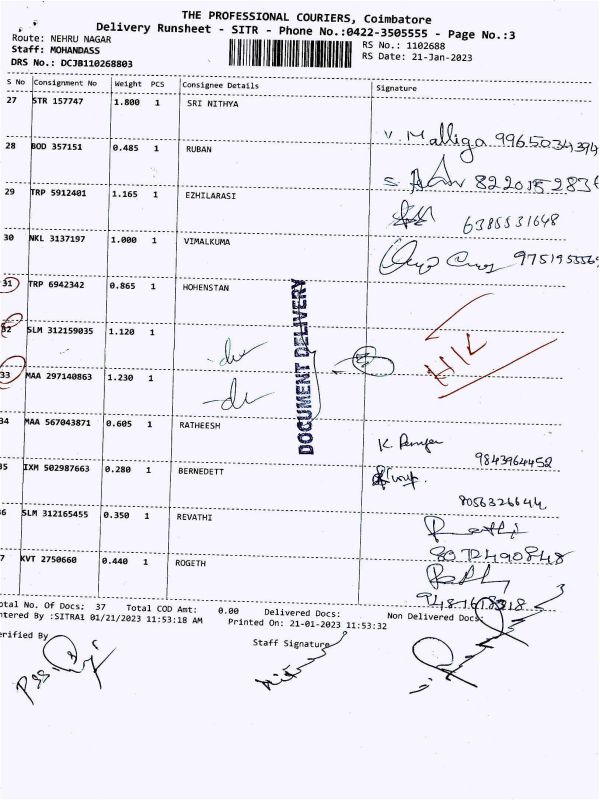 THE PROFESSIONAL COURIERS, Coimbatore
Delivery Runsheet - SITR - Phone No.:0422-3505555 - Page No.:3
Route: NEHRU NAGAR
RS No.: 1102688
Staff: MOHANDASS
RS Date: 21-Jan-2023
DRS No.: DCJB110268803
S No Consignment No Weight PCS Consignee Details Signature
27 STR 157747 1.800 1 SRI NITHYA
V. Malliga 9965034394
28 BOD 357151 0.485 1 RUBAN
29 TRP 5912401 1.165 1 EZHILARASI
6385531648
30 NKL 3137197 1.000 1 VIMALKUMA
31 TRP 6942342 0.865 1 HOHENSTAN
32 SLM 312159035 1.120 1
33 MAA 297140863 1.230 1
DOCUMENT DELIVERY
34 MAA 567043871 0.605 1 RATHEESH
9843964452
35 IXM 502987663 0.280 1 BERNEDETT
8056326644
36 SLM 312165455 0.350 1 REVATHI
8072490848
37 KVT 2750660 0.440 1 ROGETH
otal No. Of Docs: 37 Total COD Amt: 0.00 Delivered Docs: Non Delivered Docs:
ntered By :SITRA1 01/21/2023 11:53:18 AM Printed On: 21-01-2023 11:53:32
erified By
Staff Signature